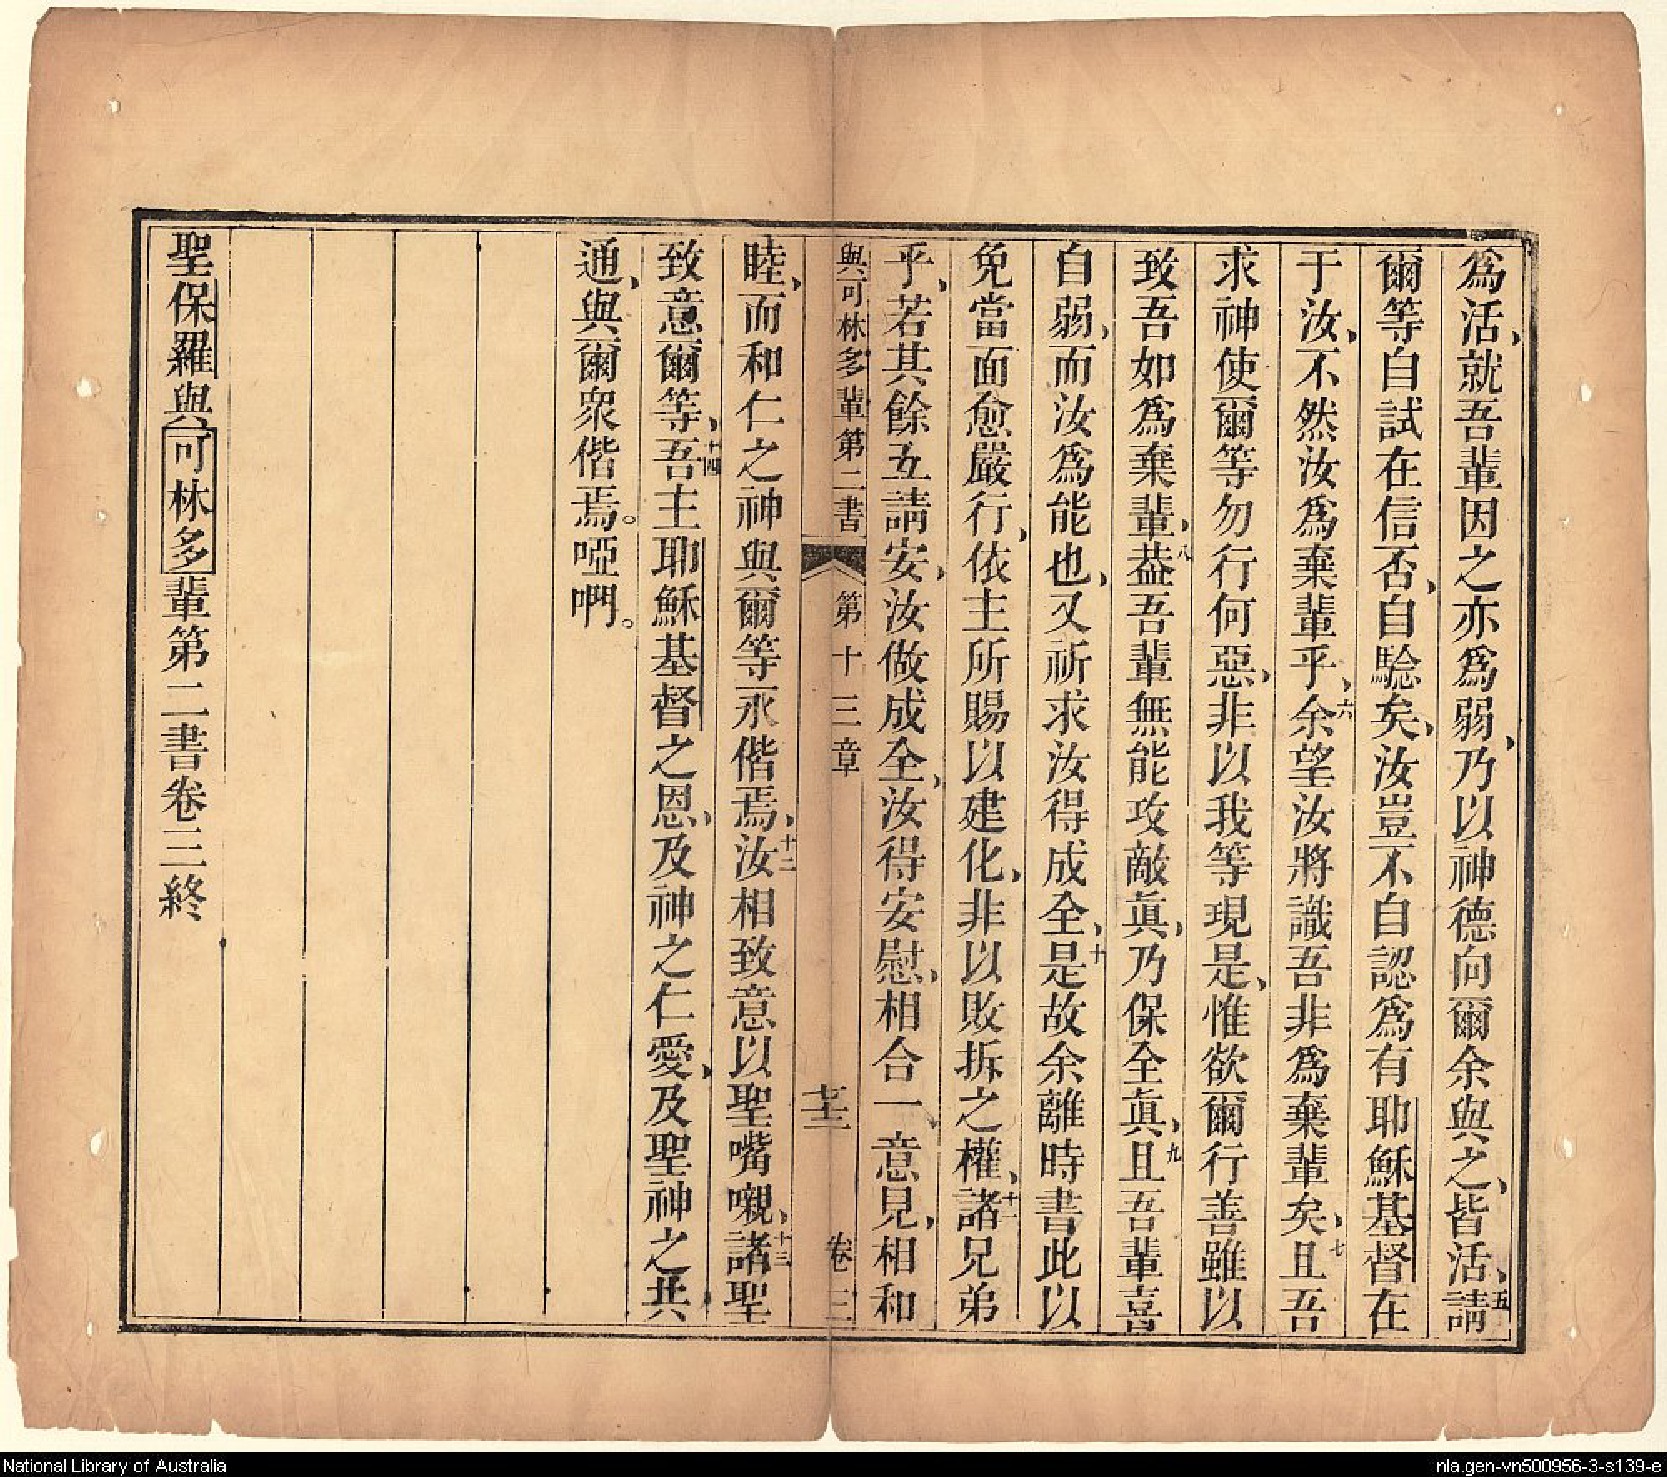 爲活、就吾輩因之亦爲弱、乃以神德向爾余與之、皆活、五請
爾等自試在信否、自騐矣、汝豈不自認爲有耶穌基督在
于汝、不然汝爲棄輩乎、六余望汝將識吾非爲棄輩矣、七且吾
求神使爾等勿行何惡、非以我等現是、惟欲爾行善雖以
致吾如爲棄輩、八葢吾輩無能攻敵眞、乃保全眞、九且吾輩喜
自弱、而汝爲能也、又祈求汝得成全、十是故余離時書此以
免當面愈嚴行、依主所賜以建化、非以敗拆之權、十一諸兄弟
乎、若其餘五請安、汝做成全、汝得安慰、相合一意見、相和
與可林多輩第二書 第十三章 七十三 卷三
睦、而和仁之神與爾等永偕焉、十二汝相致意以聖嘴嚫、十三諸聖
致意爾等、十四吾主耶穌基督之恩、及神之仁愛、及聖神之共
通、與爾衆偕焉。啞啊。
聖保羅與可林多輩第二書卷三終
National Library of Australia
nla.gen-vn500956-3-s139-e